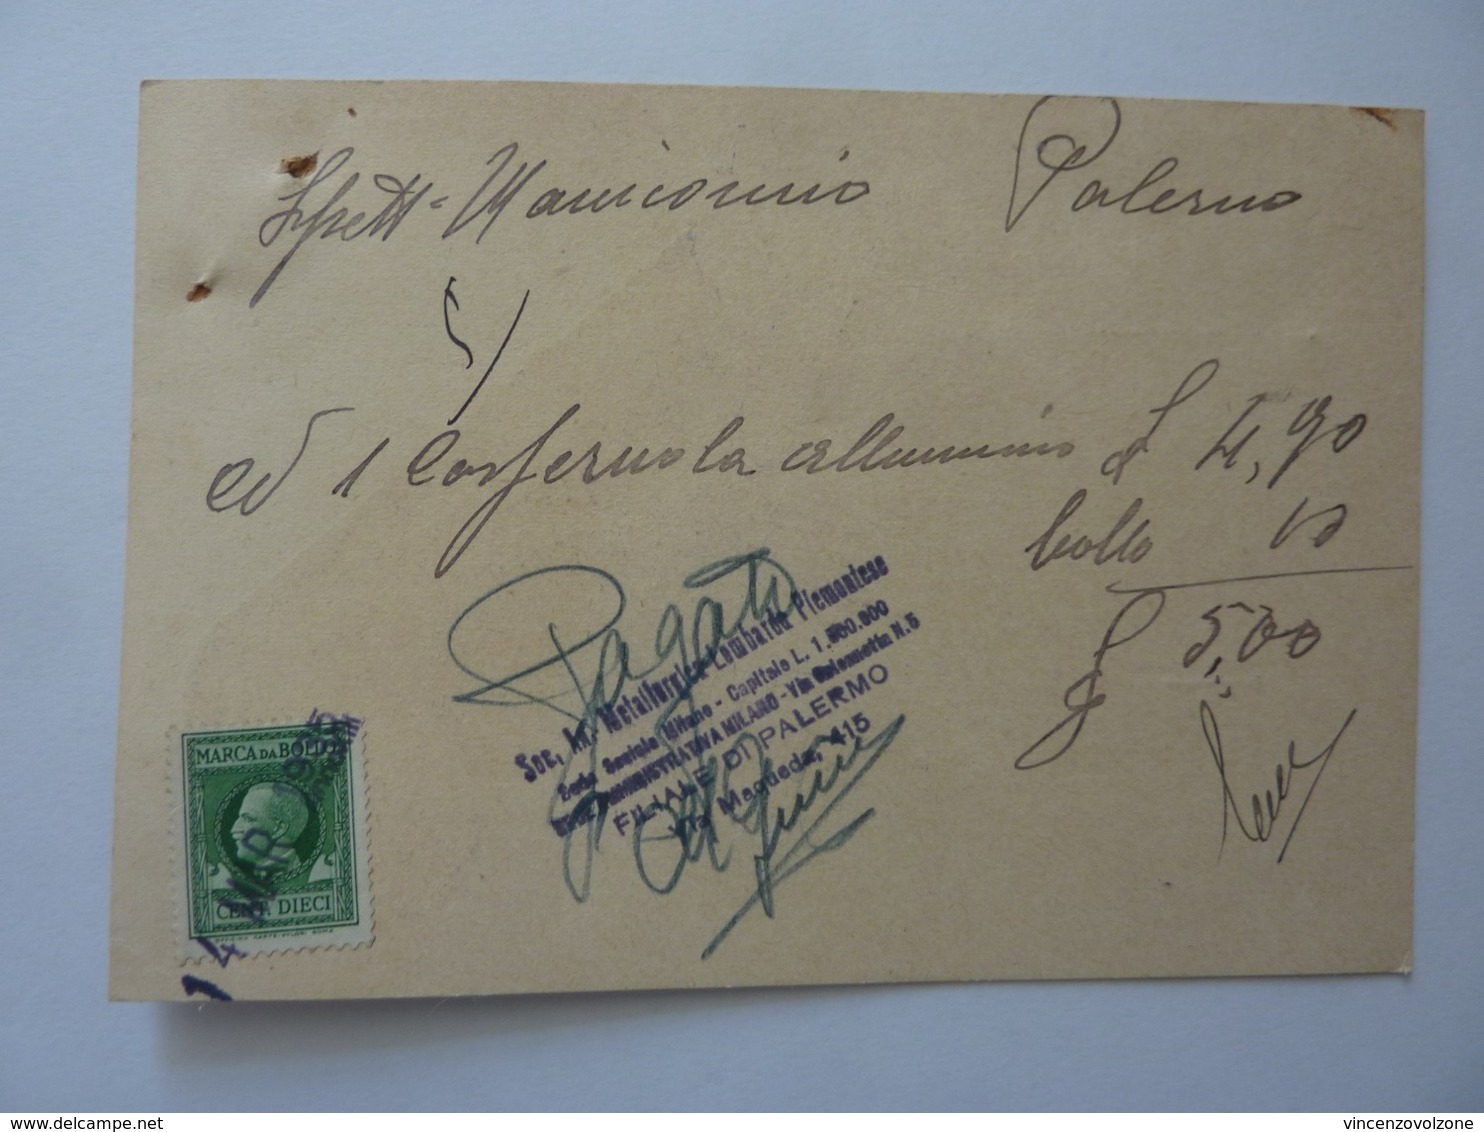 Spett= Manicomio Palermo
N 1 Casseruola alluminio £ 4,90
bollo 10
£ 5,00
Pagato
Soc. An. Metallurgica Lombarda Piemontese
Sede Sociale Milano - Capitale L. 1.500.000
AMMINISTRATIVA MILANO - Via N. 5
FILIALE DI PALERMO
Via Maqueda, 415
MARCA DA BOLLO
CENT. DIECI
14 MAR 1935
delcampe.net
vincenzovolzone